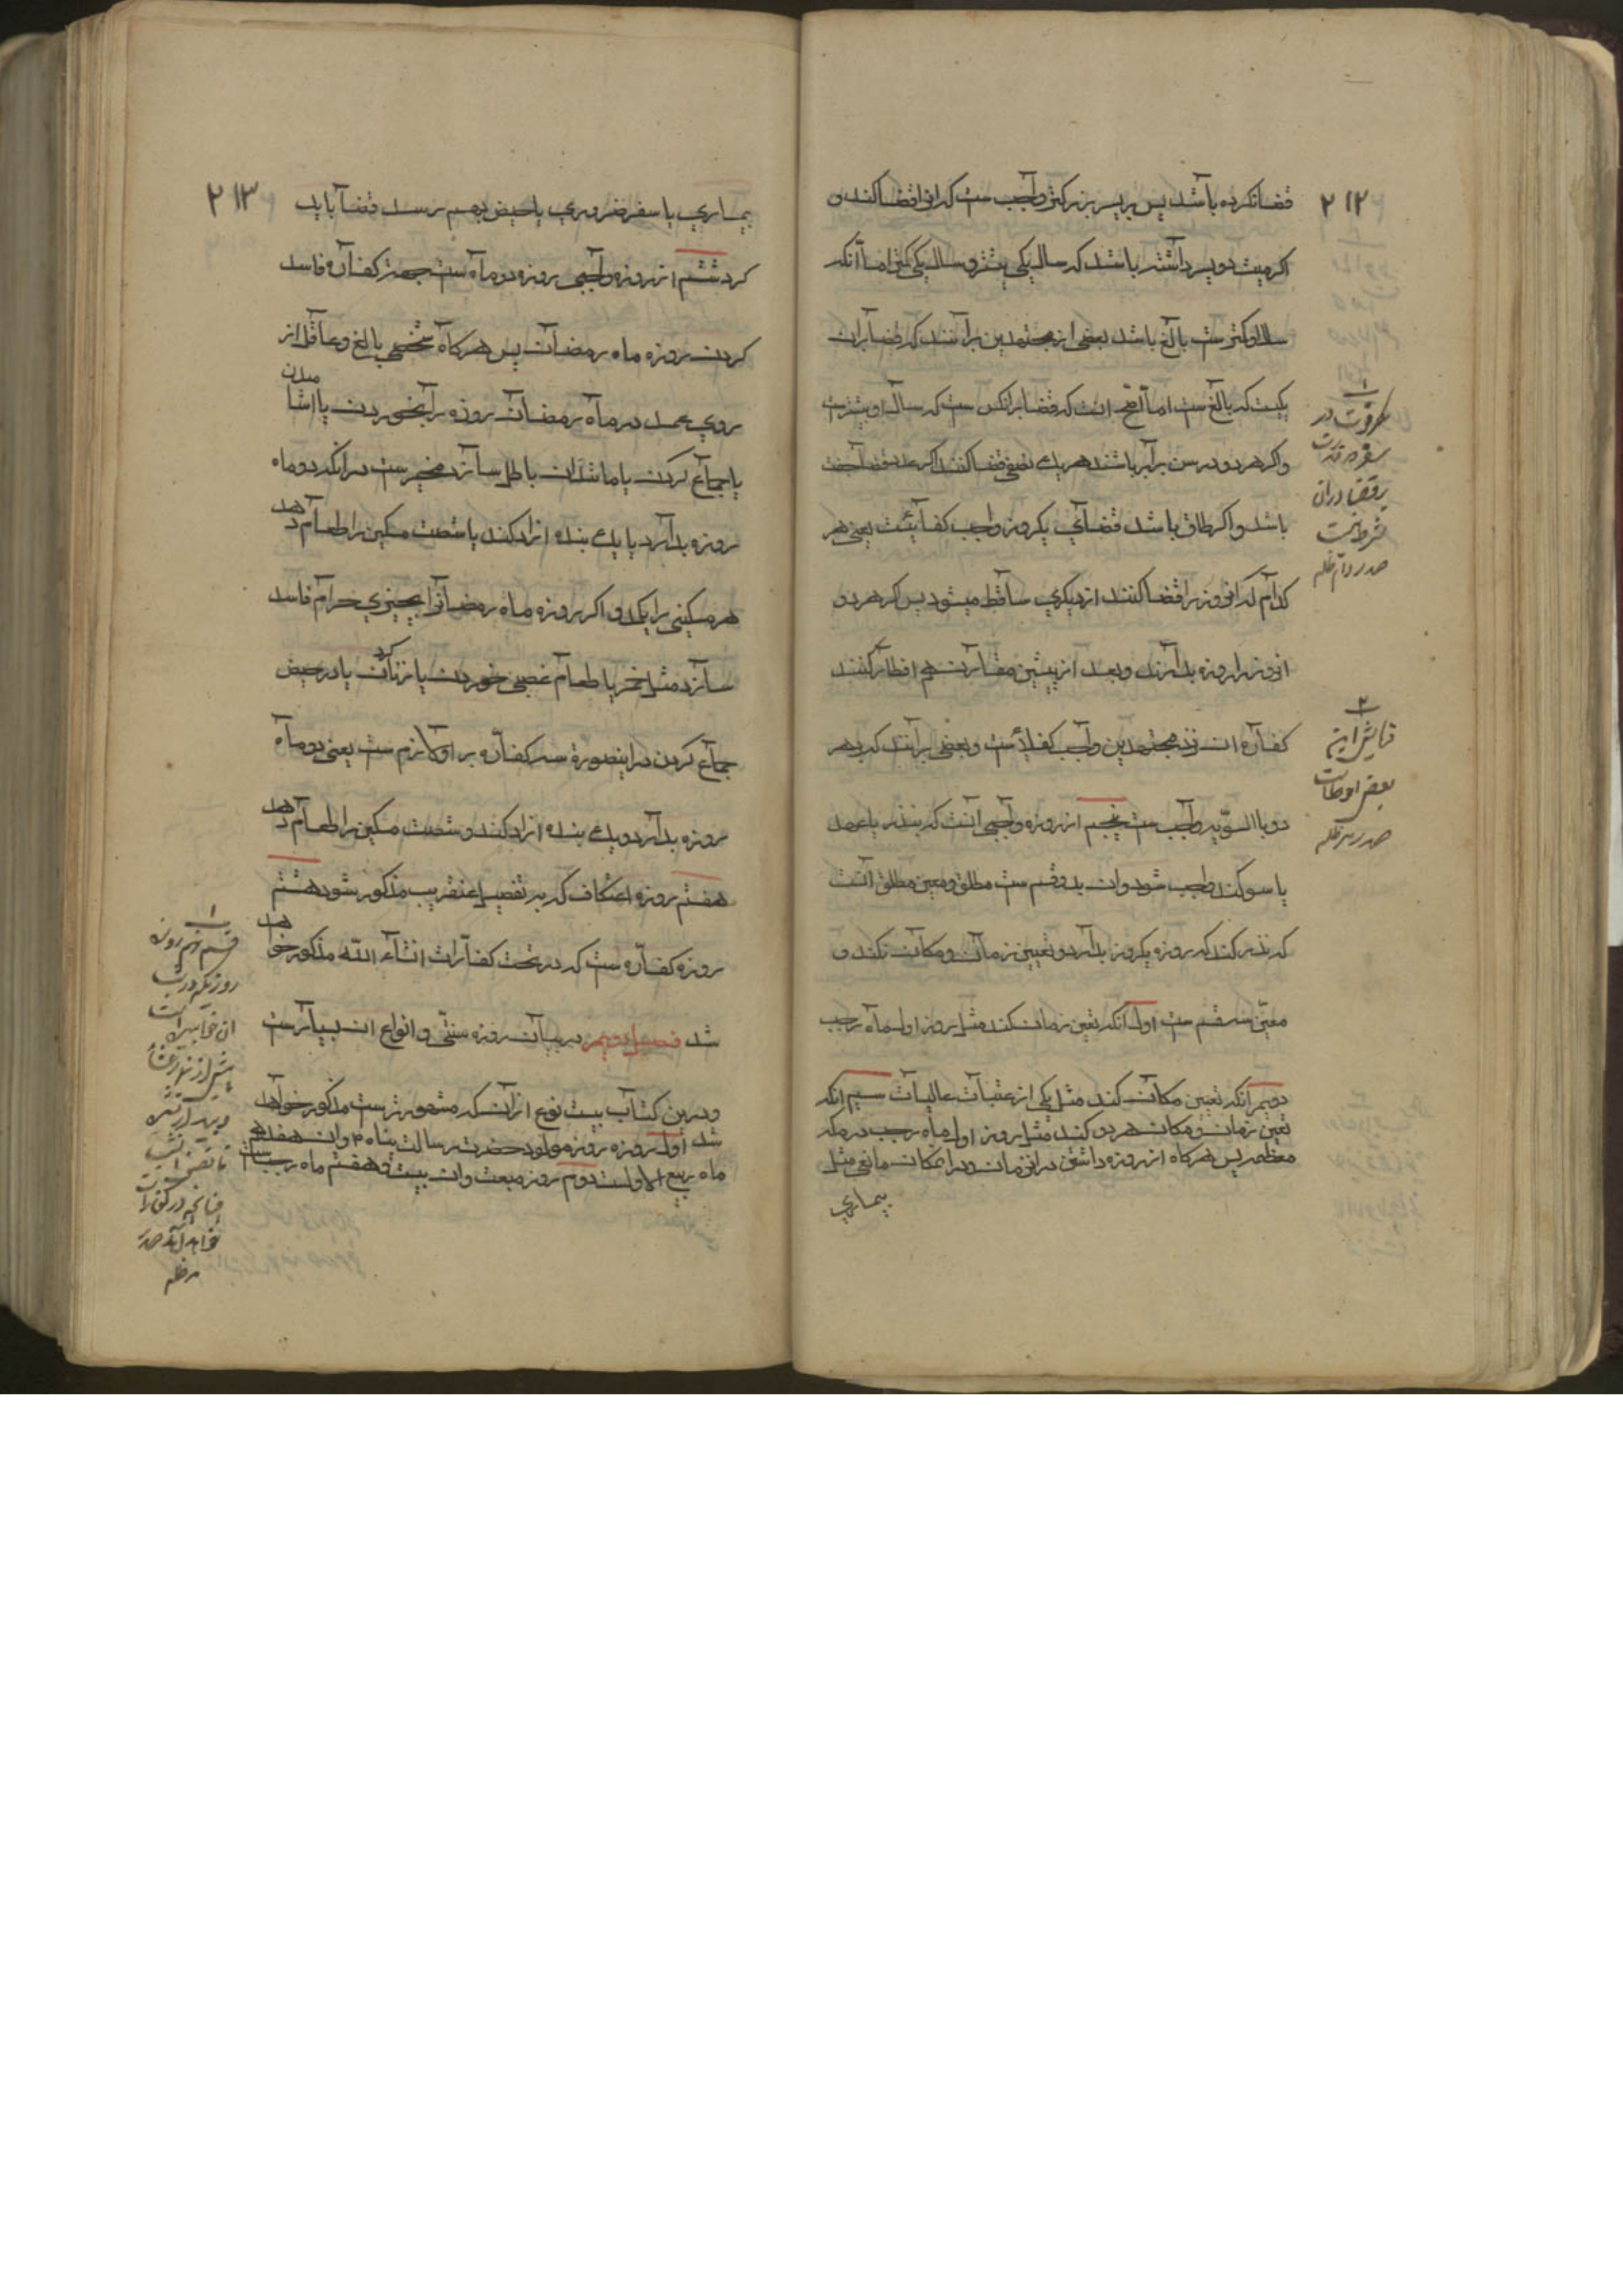 ۲۱۲
قضا نکرده باشد پس بر پسر بزرکتر واجب ست که انرا قضا کند و
اکر میت دو پسر داشته باشد که سال یکی بیشتر و سال یکی کمتر اما آنکه
سال او کمتر ست بالغ باشد بعضی از مجتهدین برآنند که قضا بران
یکیست که بالغ ست اما اصح انست که قضا برانکس ست که سال او بیشترست
و اکر هر دو در سن برابر باشند هر یک نصفی قضا کنند اکر عدد قضا جفت
باشد و اکر طاق باشد قضای یکروز واجب کفائیست یعنی هر
کدام که انروز را قضا کنند از دیکری ساقط میشود پس اکر هر دو
انروز را روزه بدارند و بعد از پیشین مقارن هم افطار کنند
کفاره ان نزد مجتهدین واجب کفائست و بعضی برانند که بر هر
دو بالسویه واجب ست پنجم از روزه واجبی آنست که بنذر یا عهد
یا سوکند واجب شود وان بدو قسم ست مطلق و معین مطلق انست
که نذر کند که روزه یکروز بدارد و تعیین زمان و مکان نکند و
معین سه قسم ست اول آنکه تعین زمان کند مثل روز اول ماه رجب
دویم آنکه تعیین مکان کند مثل یکی از عتبات عالیات سیم انکه
تعین زمان و مکان هر دو کند مثل روز اول ماه رجب در مکه
معظمه پس هرکاه از روزه داشتن در ان زمان و در ان مکان مانعی مثل
بیماری
۱
در
سفر
قضا دران
شرط نیست
صدر دام ظله
۲
این
بعض احوطست
صدر
۲۱۳
بیماری یا سفر ضروری یا حیض بهم رسد قضا باید
کرد ششم از روزه واجبی روزه دو ماه ست بجهة کفاره فاسد
کردن روزه ماه رمضان پس هرکاه شخصی بالغ و عاقل از
روی عمد در ماه رمضان روزه را بخوردن یا اشامیدن
یا جماع کردن یا مانند ان باطل سازد مخیر ست در انکه دو ماه
روزه بدارد یا یک بنده ازاد کند یا شصت مسکین را طعام دهد
هر مسکینی را یکمد و اکر روزه ماه رمضانرا بچیزی حرام فاسد
سازد مثل خمر یا طعام غصبی خوردن یا زنا کردن یا در حیض
جماع کردن در اینصورة سه کفاره بر او لازم ست یعنی دو ماه
روزه بدارد و یک بنده ازاد کند و شصت مسکین را طعام دهد
هفتم روزه اعتکاف که بتفصیل عنقریب مذکور شود هشتم
روزه کفاره ست که در تحت کفارات انشاء الله مذکور خواهد
شد فصل دویم در بیان روزه سنتی و انواع ان بسیارست
و درین کتاب بیست نوع از ان که مشهورترست مذکور خواهد
شد اول روزه روز مولود حضرت رسالت پناه ۴ و ان هفدهم
ماه ربیع الاولست دوم روز مبعث و ان بیست و هفتم ماه رجب ست
۱
قسم نهم روزه
روزیکه در شب
ان خوابیده است
پیش از نماز عشا
و بیدار نشد
تا نصف شب
چنانچه در کفارات
خواهد آمد صدر